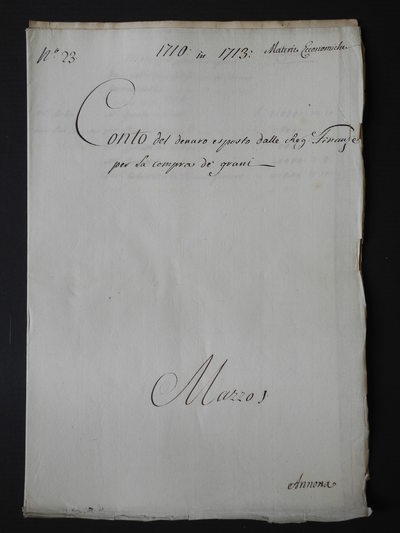 N.° 23
1710: in 1713:
Materie Economiche
Conto del denaro esposto dalle Reg.e Finanze
per la compra de' grani
Mazzo 1
Annona